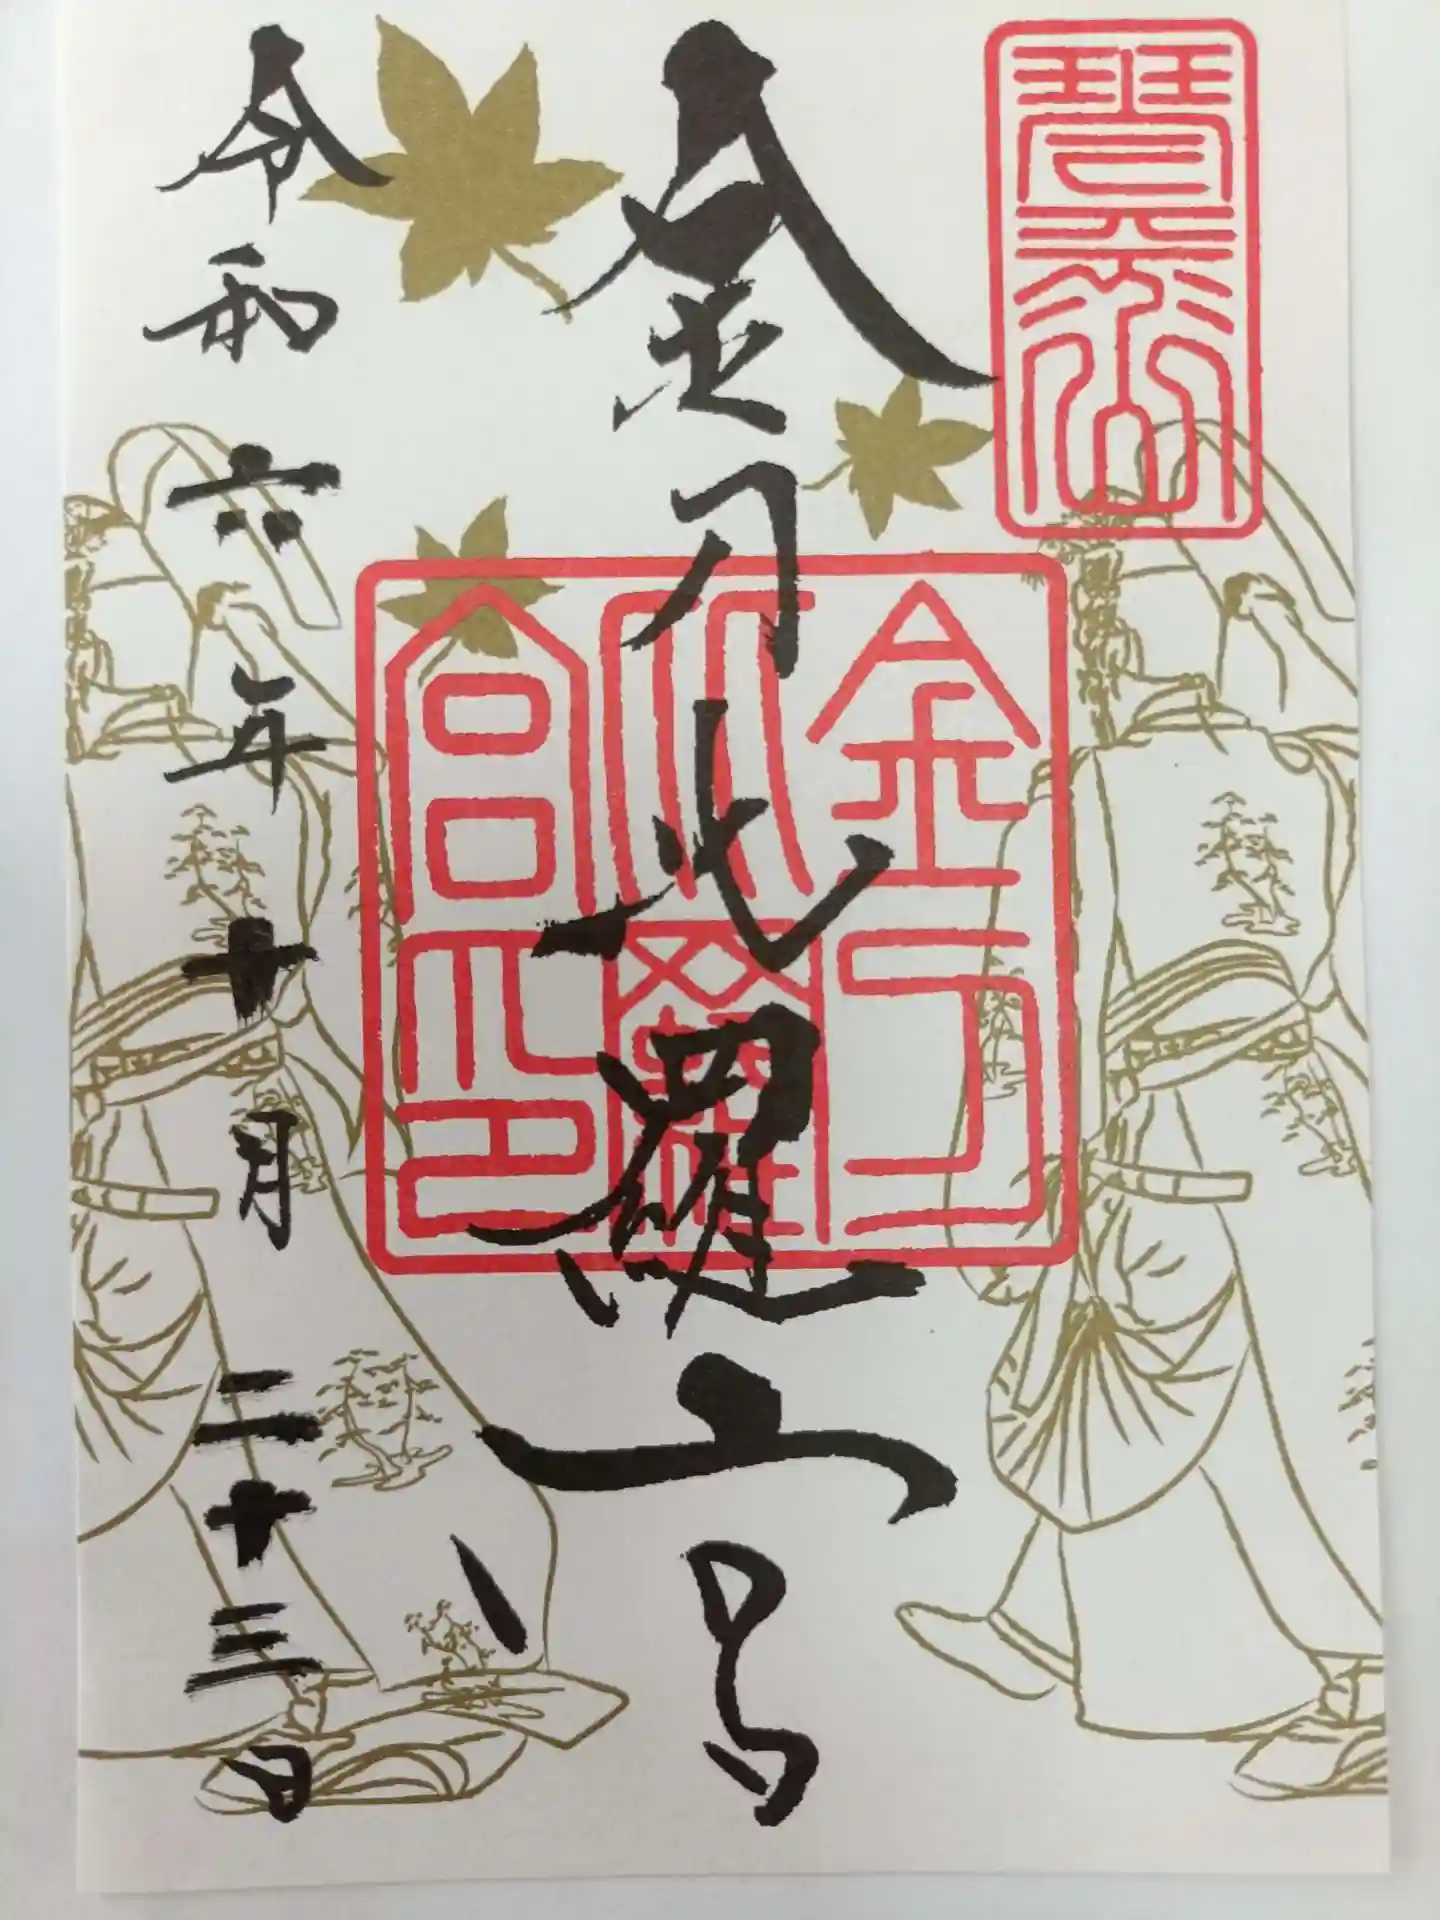 琴平山
金刀比羅宮
金刀
比羅
宮印
令和六年十月二十三日